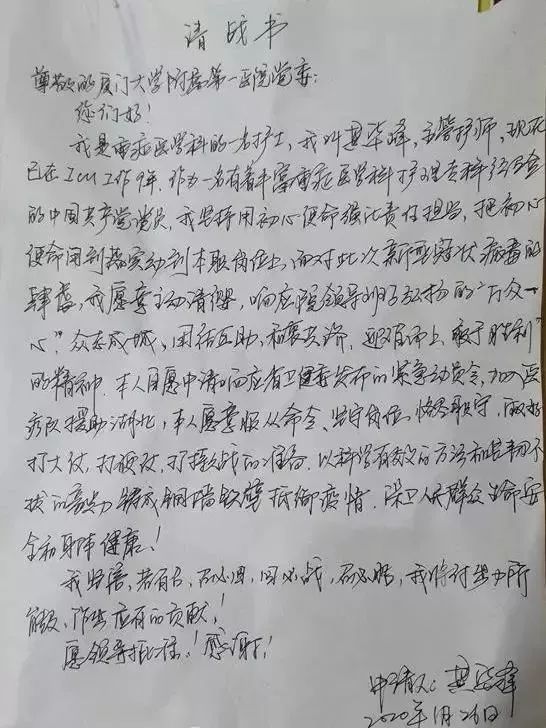 请战书
尊敬的厦门大学附属第一医院党委：
您们好！
我是重症医学科的一名护士，我叫 主管护师，现在
已在ICU工作9年，作为一名有着丰富重症医学科护理专科经验
的中国共产党党员，我坚持用初心使命强化责任担当，把初心
使命用到落实动到本职岗位上，面对此次新型冠状病毒的
肆虐，我愿意主动请缨，响应院领导 弘扬的“万众一
心”众志成城、团结互助、和衷共济、迎难而上、敢于胜利”
的精神。本人自愿申请响应省卫健委发布的紧急动员令，加入医
疗队援助湖北，本人愿意服从命令、坚守岗位、恪尽职守，做好
打大仗，打硬仗，打持久战的准备，以科学有效的方法和坚韧不
拔的意志力铸成铜墙铁壁抵御疫情，保卫人民群众生命安
全和身体健康！
我坚信，若有召，召必回，回必战，战必胜，我将付出力所
能及，作出应有的贡献！
愿领导批准！感谢！
申请人：
2020年1月26日